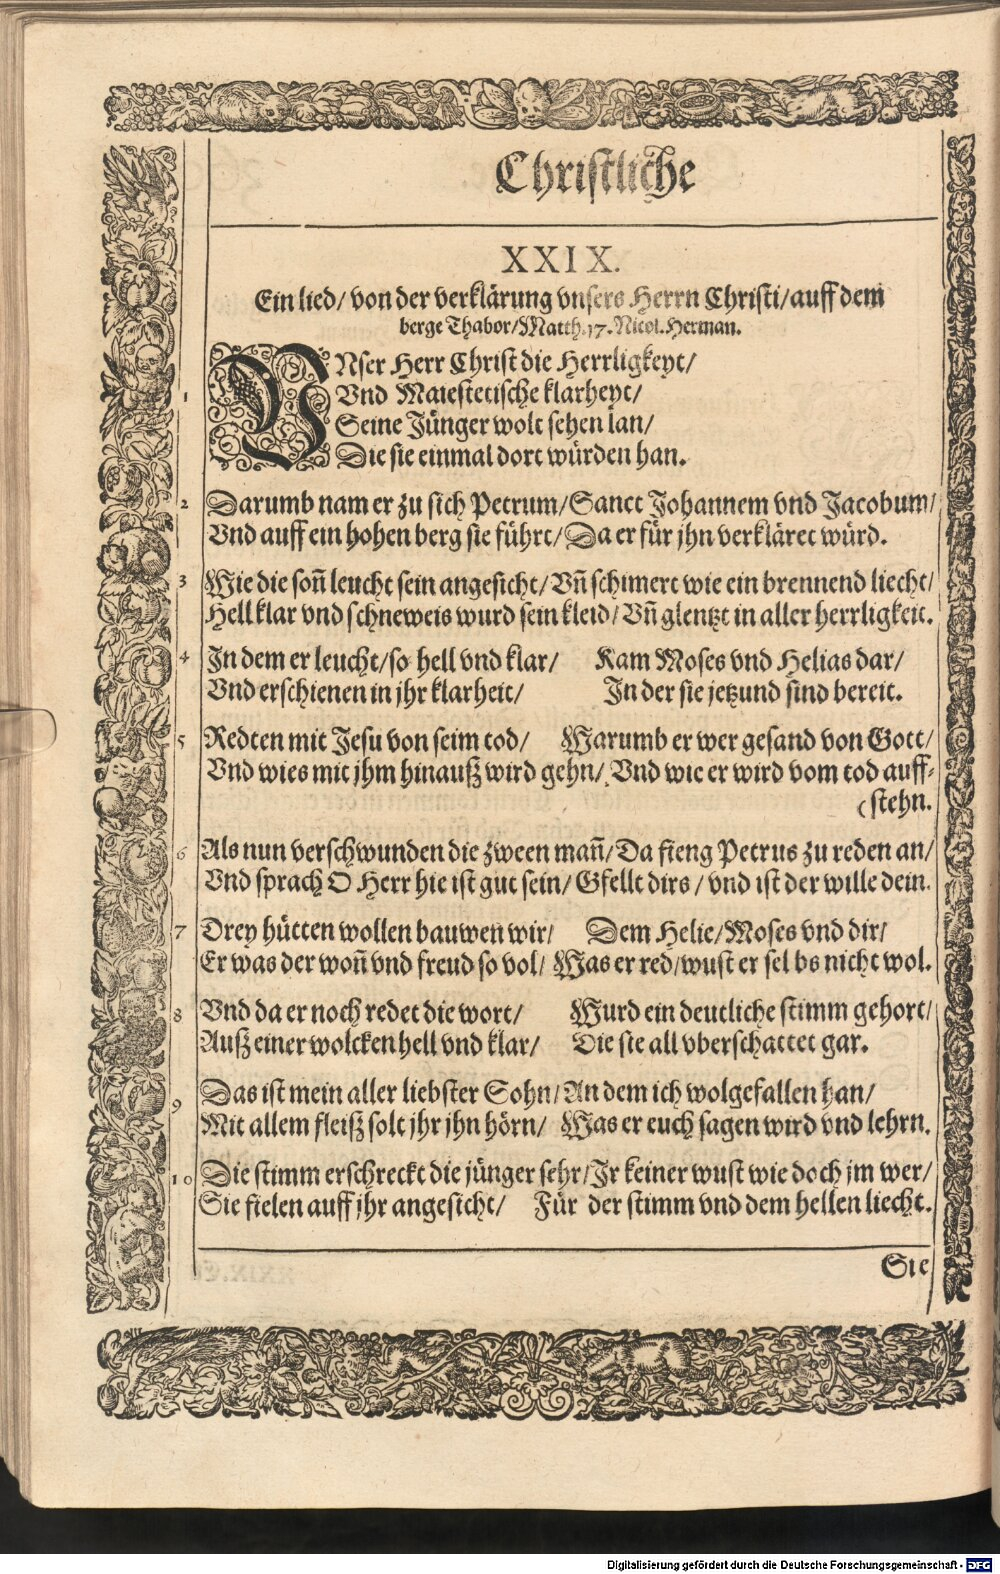 Christliche
XXIX.
Ein lied/ von der verklärung vnsers Herrn Christi/ auff dem
berge Thabor/ Matth. 17. Nicol. Herman.
VNser Herr Christ die Herrligkeyt/
1 Vnd Maiestetische klarheyt/
Seine Jünger wolt sehen lan/
Die sie einmal dort würden han.
2 Darumb nam er zu sich Petrum/ Sanct Johannem vnd Jacobum/
Vnd auff ein hohen berg sie führt/ Da er für jhn verkläret würd.
3 Wie die soñ leucht sein angesicht/ Vñ schimert wie ein brennend liecht/
Hell klar vnd schneweis wurd sein kleid/ Vñ glentzt in aller herrligkeit.
4 In dem er leucht/ so hell vnd klar/ Kam Moses vnd Helias dar/
Vnd erschienen in jhr klarheit/ In der sie jetzund sind bereit.
5 Redten mit Jesu von seim tod/ Warumb er wer gesand von Gott/
Vnd wies mit jhm hinauß wird gehn/ Vnd wie er wird vom tod auff-
(stehn.
6 Als nun verschwunden die zween mañ/ Da fieng Petrus zu reden an/
Vnd sprach O Herr hie ist gut sein/ Gfellt dirs/ vnd ist der wille dein.
7 Drey hütten wollen bauwen wir/ Dem Helie/ Moses vnd dir/
Er was der woñ vnd freud so vol/ Was er red/ wust er selbs nicht wol.
8 Vnd da er noch redet die wort/ Wurd ein deutliche stimm gehort/
Auß einer wolcken hell vnd klar/ Die sie all vberschattet gar.
9 Das ist mein aller liebster Sohn/ An dem ich wolgefallen han/
Mit allem fleiß solt jhr jhn hörn/ Was er euch sagen wird vnd lehrn.
10 Die stimm erschreckt die jünger sehr/ Jr keiner wust wie doch jm wer/
Sie fielen auff jhr angesicht/ Für der stimm vnd dem hellen liecht.
Sie
Digitalisierung gefördert durch die Deutsche Forschungsgemeinschaft - DFG